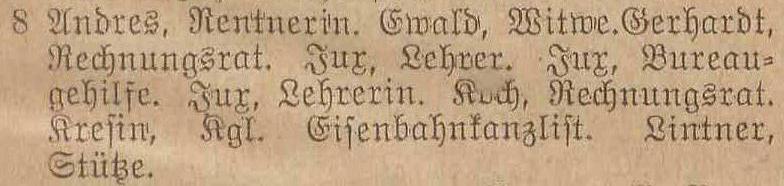 8 Andres, Rentnerin. Ewald, Witwe. Gerhardt,
Rechnungsrat. Jux, Lehrer. Jux, Bureau-
gehilfe. Jux, Lehrerin. Koch, Rechnungsrat.
Kresin, Kgl. Eisenbahnkanzlist. Lintner,
Stütze.